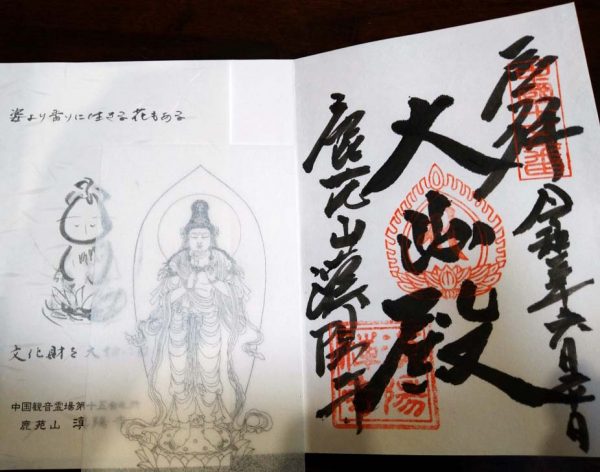 姿より香りに生きる花もある
文化財を大
中国観音霊場第十五番
鹿苑山 漢陽寺
奉拝
令和 年六月 日
大悲殿
鹿苑山漢陽寺